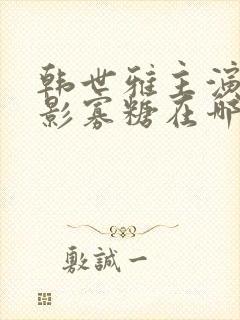 韩世雅主演
影寡糖在哪
敷誠一